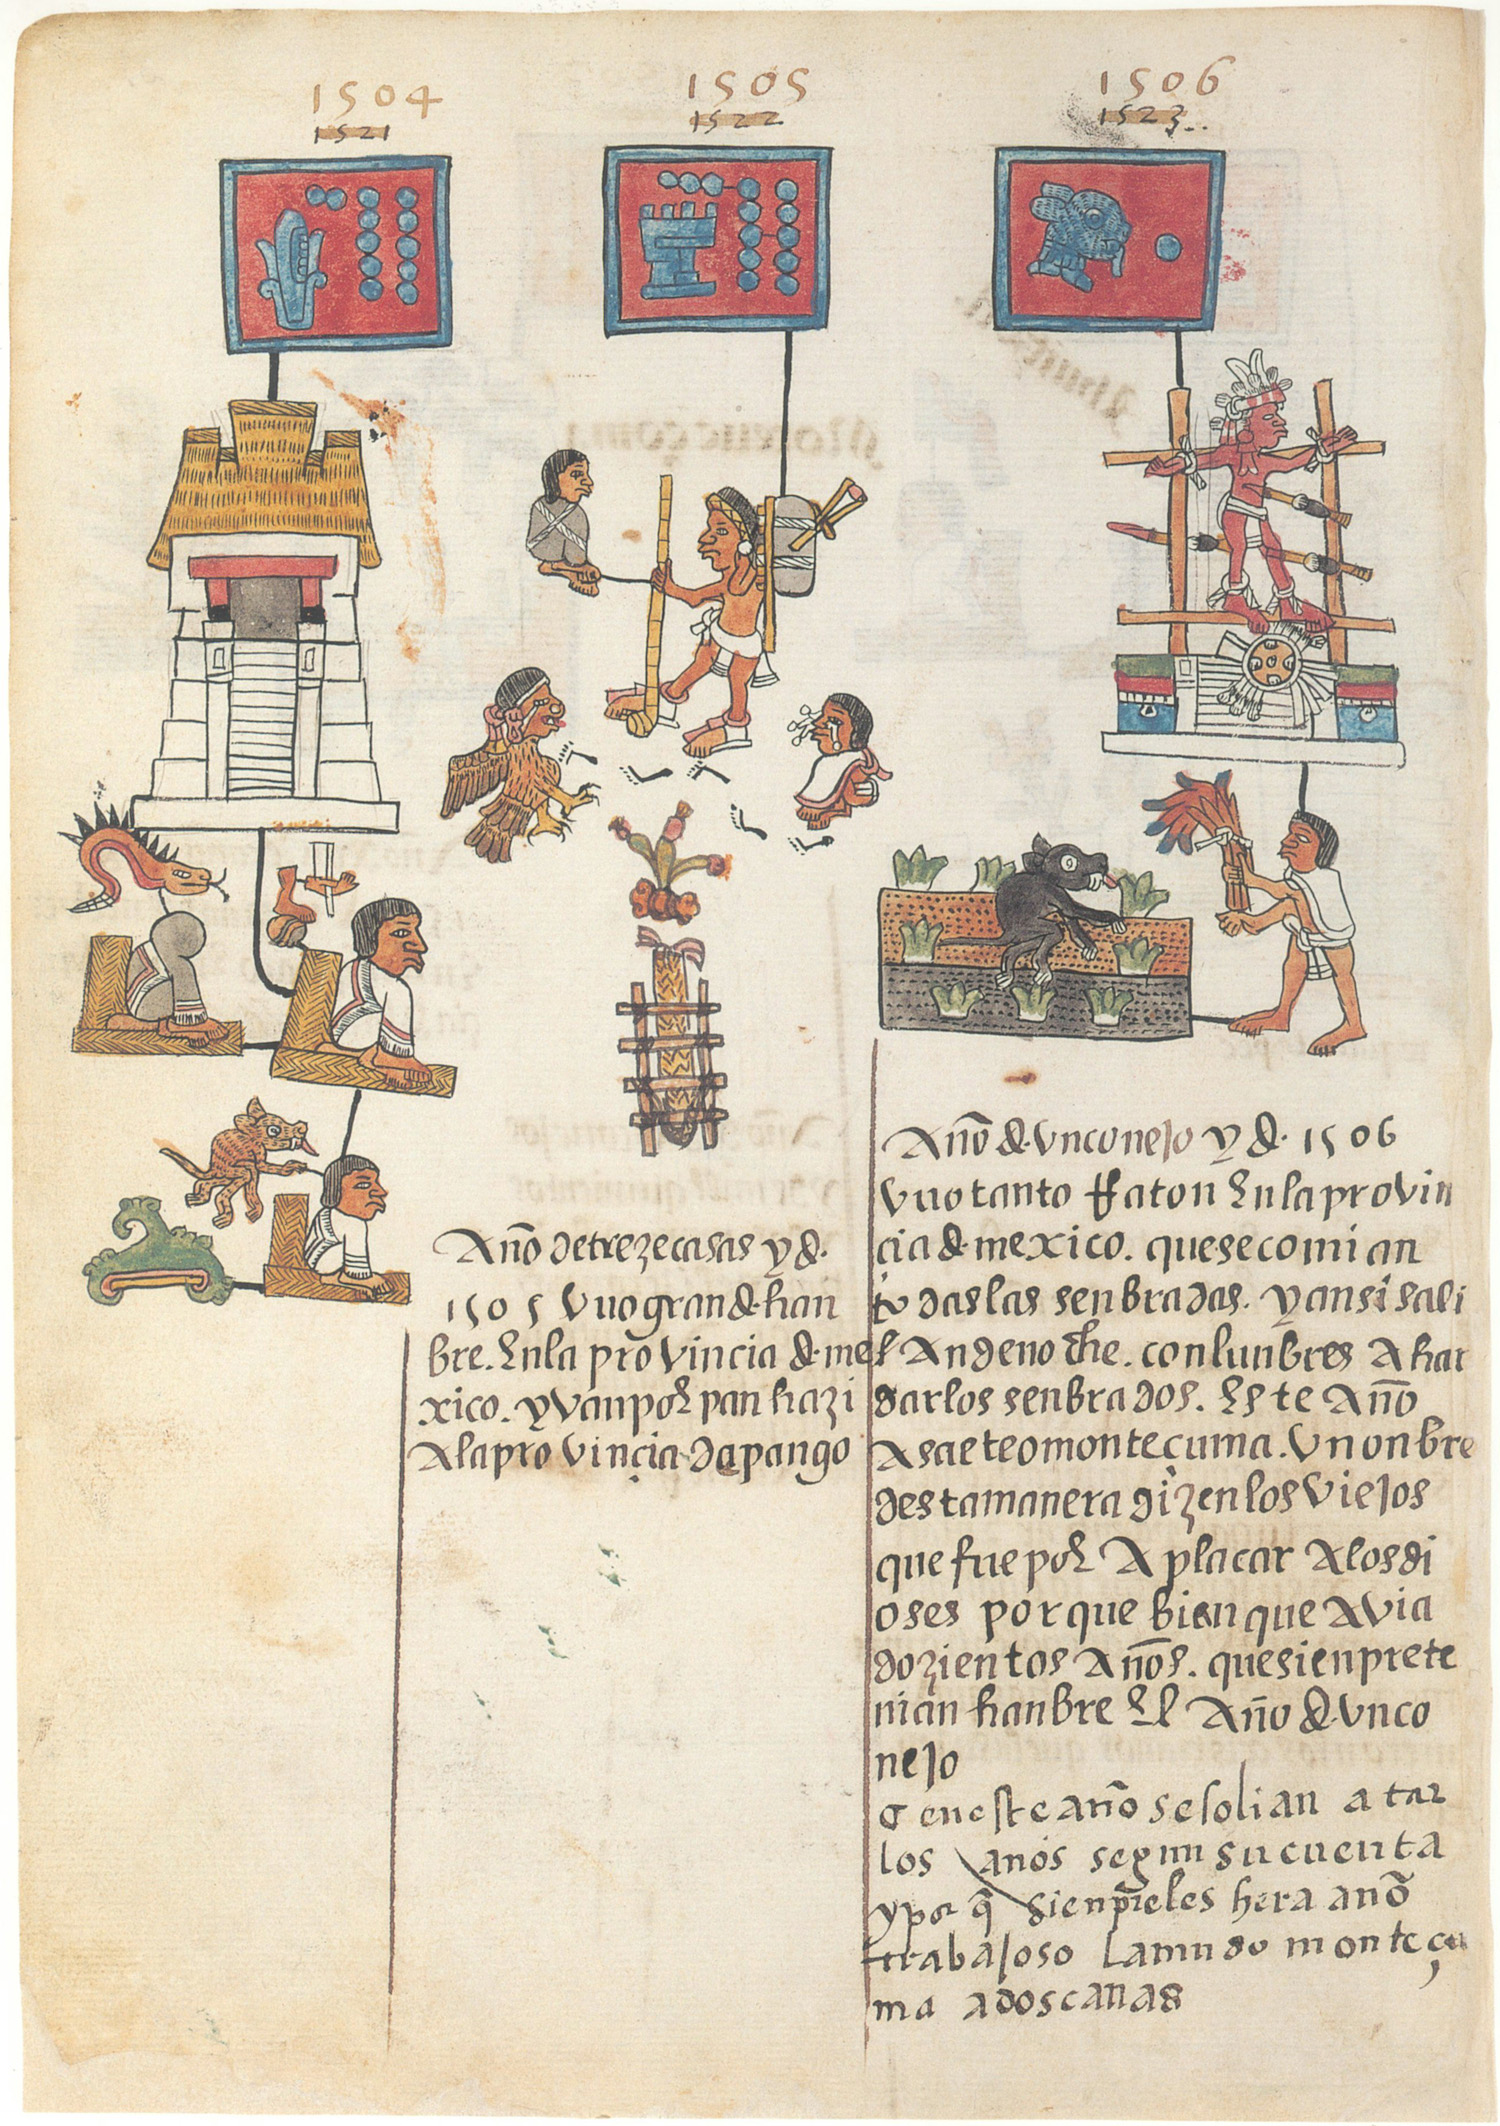 1504
1521
1505
1522
1506
1523..
Año detrezecasas y d.
1505 Vuo grand. han
bre. En la provincia d. me
xico. y van por pan hazi
A la provincia dapango
Año d. vn conejo y d. 1506
Vuo tanto Raton En la provin
cia d. mexico. que se comian
todas las senbradas. y ansi sali
An de noche. con lunbres A har
dar los senbrados. Este Año
Asaeteo montecuma. Vn onbre
desta manera dizen los Viejos
que fue por Aplacar A los di
oses porque bien que Avia
dozientos Años. que sienpre te
nian hanbre El Año d. vn co
nejo
en este año se solian atar
los años segun su cuenta
y por q̃ sienpre les hera año
trabajoso la mudo monteçu
ma a dos cañas